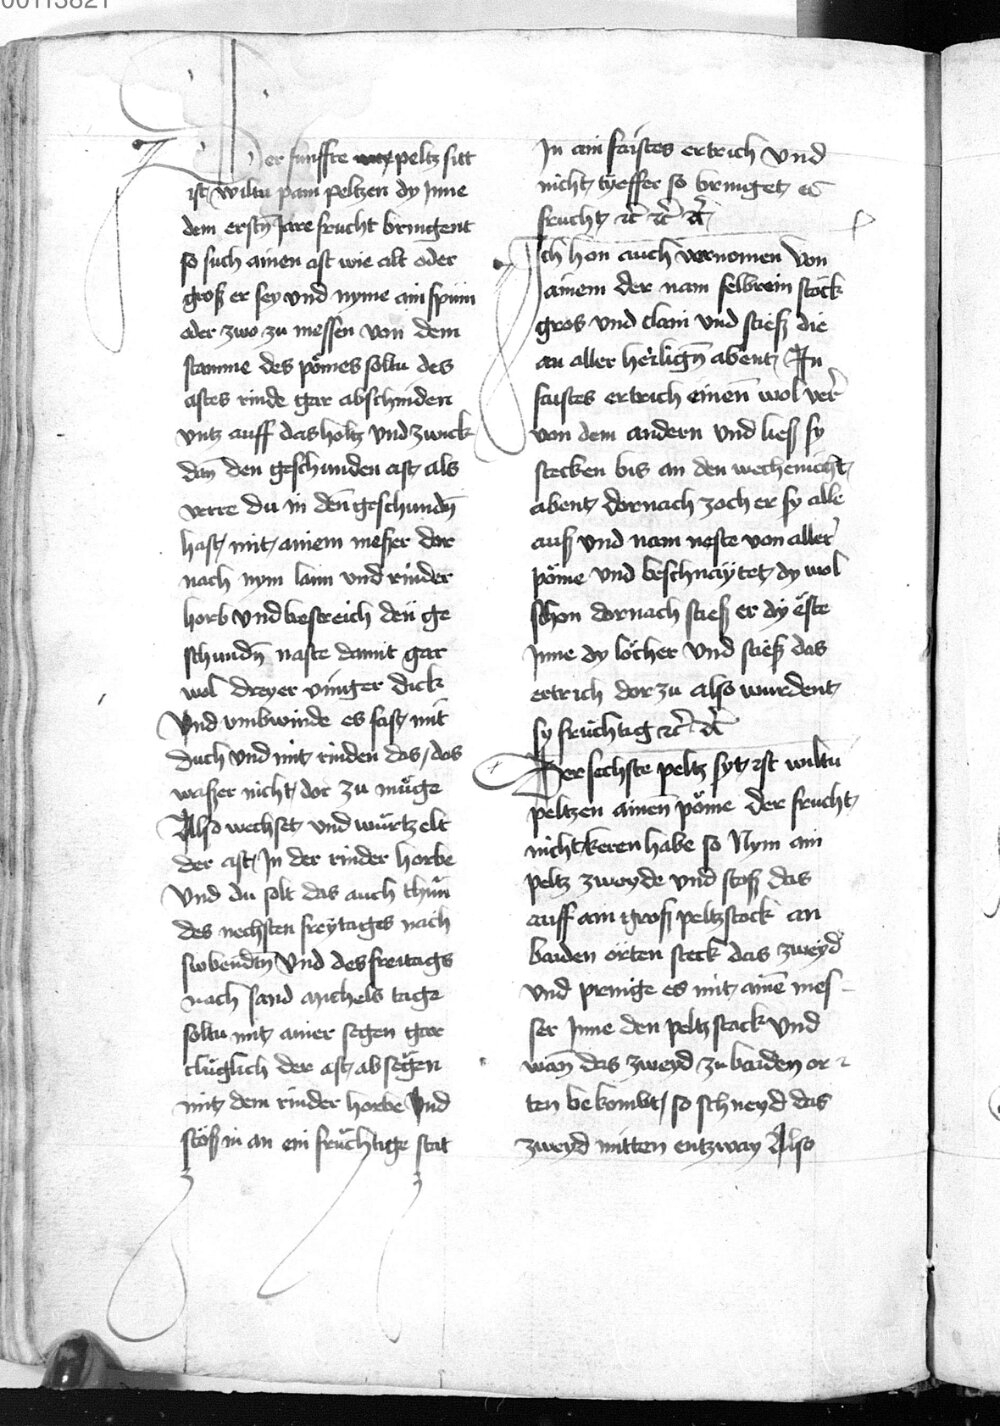 00113821
Der funffte peltz sitt
ist wiltu pam peltzen dy Inne
dem erstn Jare frucht bringent
so such ainen ast wie alt oder
groß er sey vnd nyme ain spann
oder zwo zu messen von dem
stamme des pömes soltu des
astes rinde gar abschinden
vntz auff das holtz vnd zwick
dan den geschunden ast als
verre du in den geschundn
hast mit ainem meßer dor
nach nym laim vnd rinder
horb vnd bestreich den ge
schundn naste damit gar
wol dreyer vinger dick
Vnd vmbwinde es fast mit
duch vnd mit rinden das das
waßer nicht dor zu müge
Also wechset vnd würtzelt
der ast In der rinder horbe
Vnd du solt das auch thun
des nechsten freytages nach
sunbendtn Vnd des freitags
nach sand michels tage
soltu mit ainer segen gar
cluglich der ast absegen
mit dem rinder horbe Vnd
stöß in an ein früchtige stat
In ain faistes ertrich vnd
nicht tyeffer so bringet es
frucht etc etc etc
Ich hon auch vernomen von
ainem der nam felbrein stöck
gros vnd clain vnd stieß die
an aller heiligen abent In
faistes ertrich einen wol ver
von dem andern vnd ließ sy
stecken bis an den wechenicht
abent dornach zoch er sy alle
auß vnd nam neste von aller
pöme vnd beschnaytet dy wol
schon dornach stieß er dy este
Inne dy löcher vnd stieß das
ertrich dor zu also wurdent
sy früchtig etc etc
Der sechste peltz syt ist wiltu
peltzen ainen pöme der frucht
nicht keren habe so Nym ain
peltz zweyde vnd stoß das
auff ain groß peltzstock an
baiden orten steck das zweyd
vnd prenige es mit aine mes-
ser Inne den peltz stack vnd
wan das zweyd zu baiden or
ten bekombt so schneyd das
zweyd mitten entzway Also